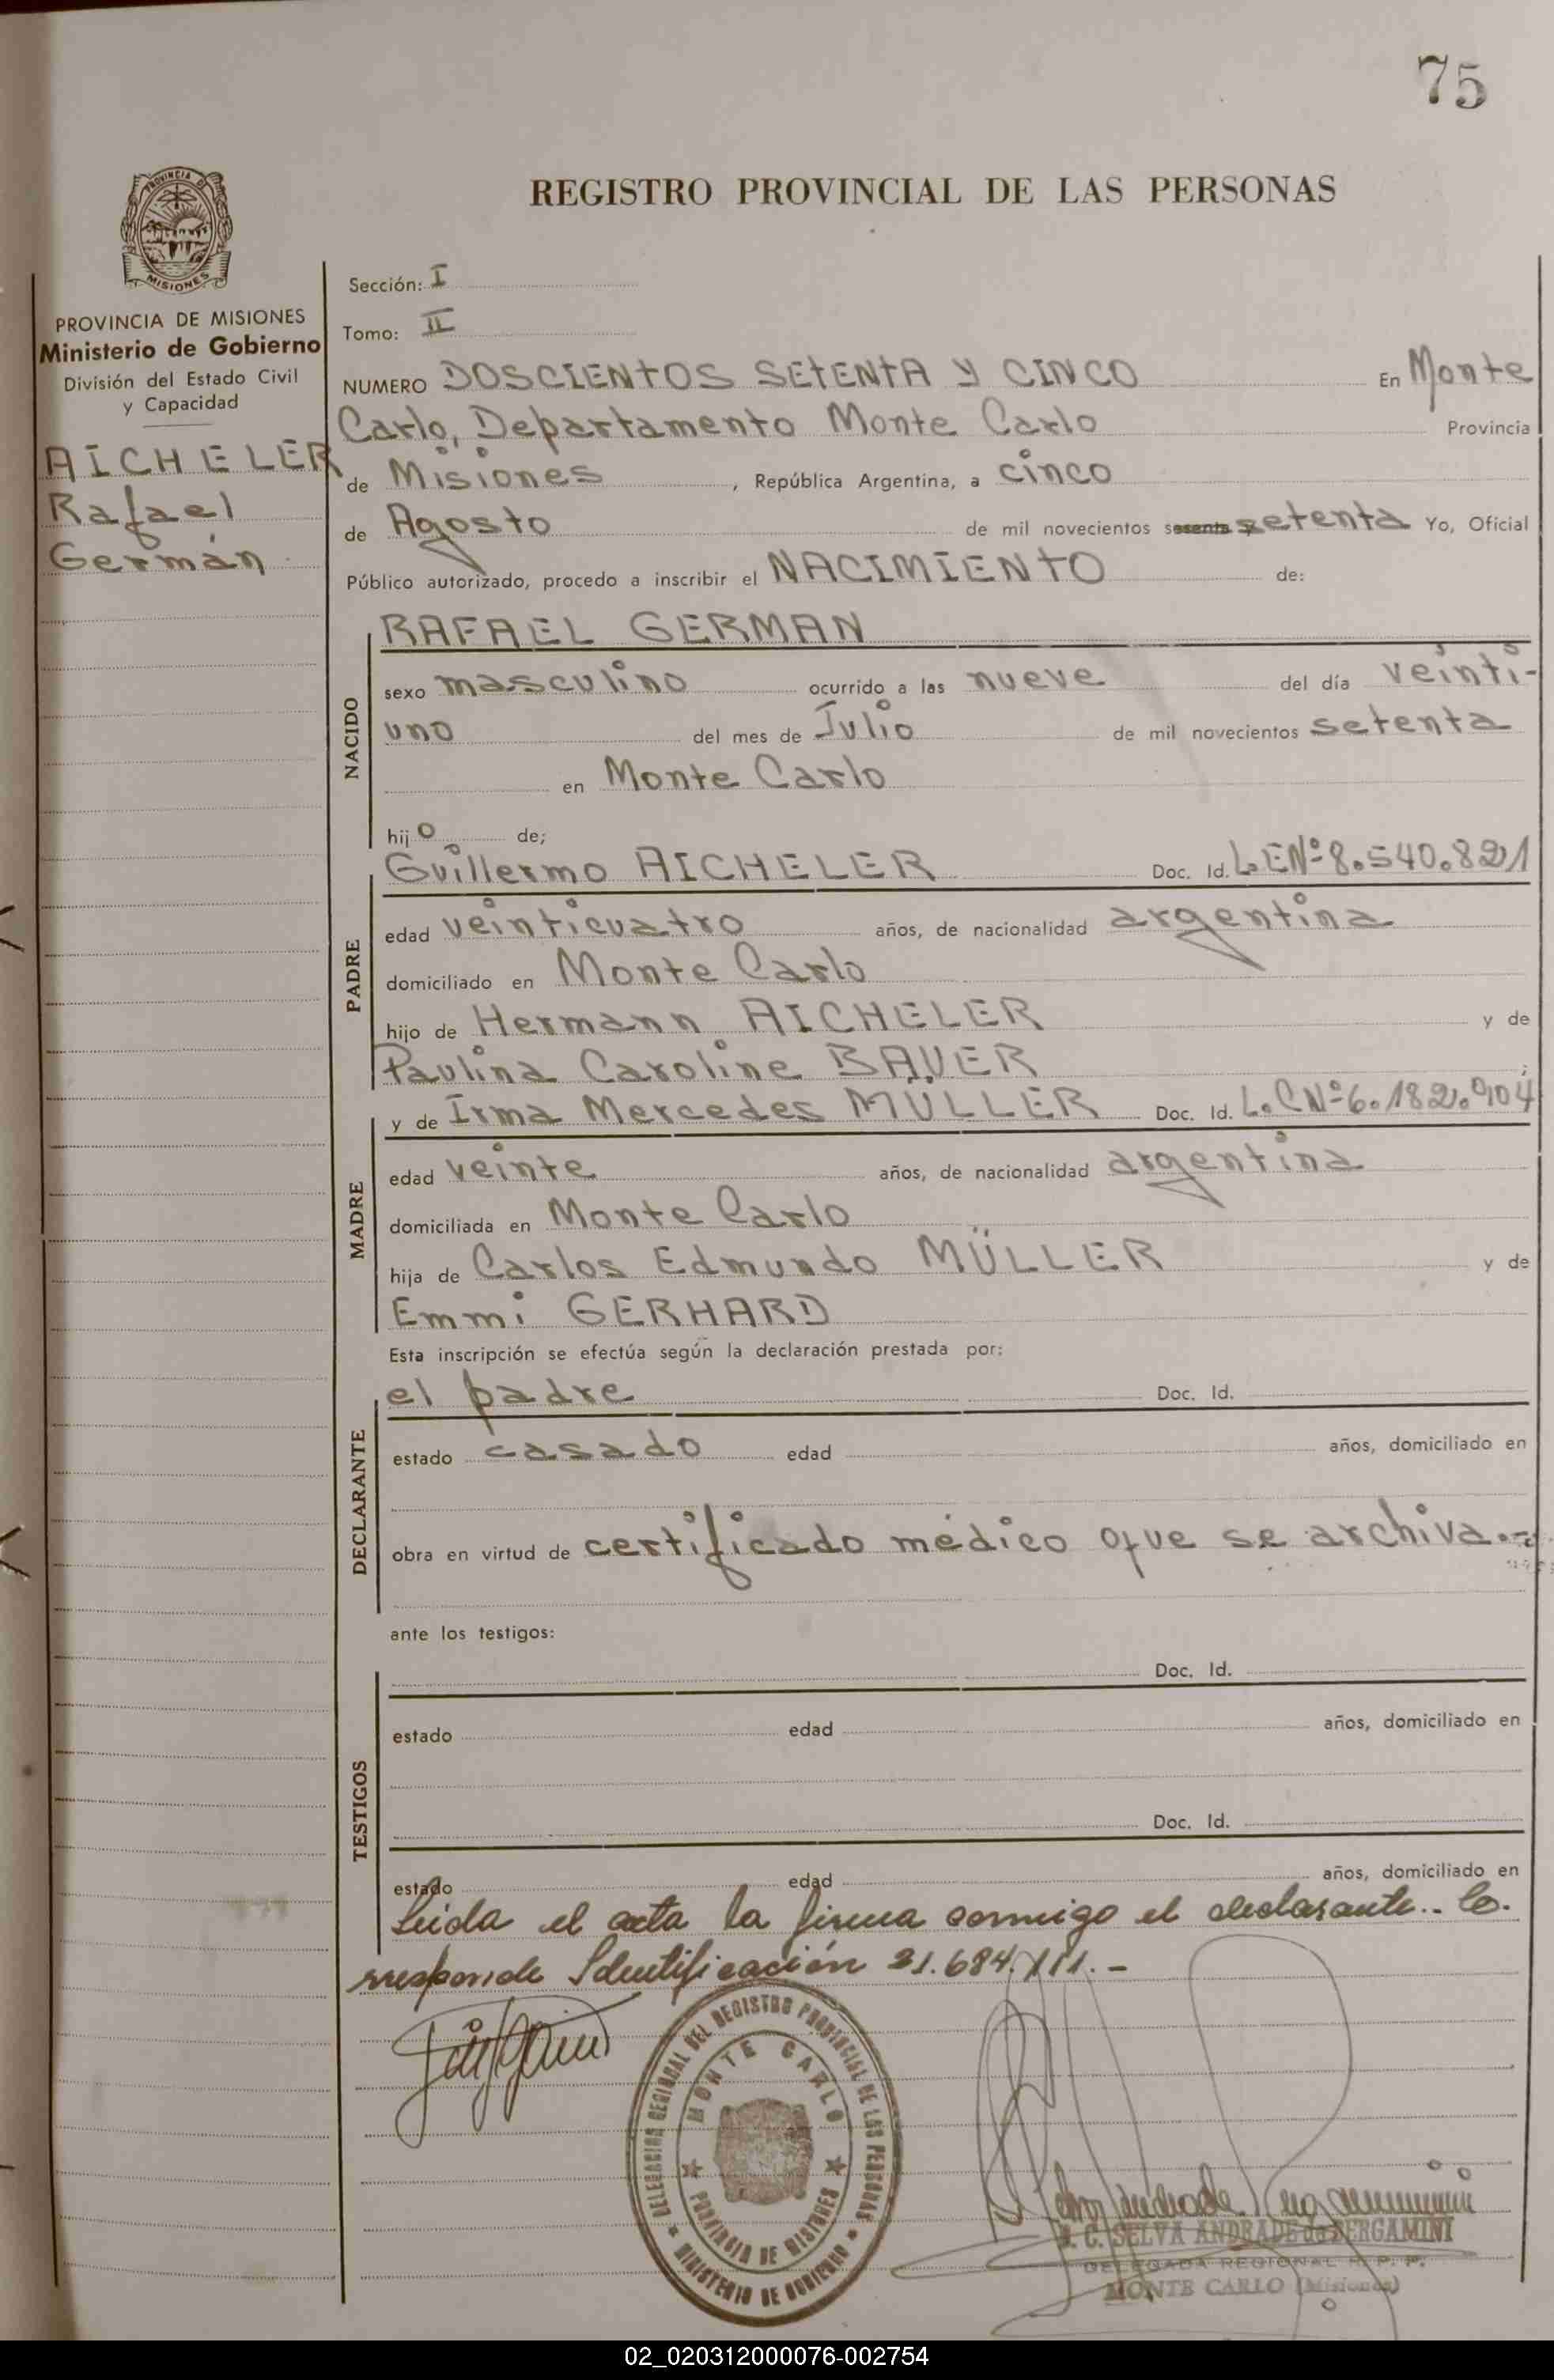 75
REGISTRO PROVINCIAL DE LAS PERSONAS
PROVINCIA DE
MISIONES
PROVINCIA DE MISIONES
Ministerio de Gobierno
División del Estado Civil
y Capacidad
AICHELER
Rafael
Germán
Sección: I
Tomo: II
NUMERO DOSCIENTOS SETENTA Y CINCO En Monte
Carlo, Departamento Monte Carlo Provincia
de Misiones, República Argentina, a cinco
de Agosto de mil novecientos sesenta y setenta Yo, Oficial
Público autorizado, procedo a inscribir el NACIMIENTO de:
NACIDO
RAFAEL GERMAN
sexo masculino ocurrido a las nueve del día veinti-
uno del mes de Julio de mil novecientos setenta
en Monte Carlo
hijo de;
PADRE
Guillermo AICHELER Doc. Id. L.E Nº 8.540.821
edad veinticuatro años, de nacionalidad argentina
domiciliado en Monte Carlo
hijo de Hermann AICHELER y de
Paulina Caroline BAUER
MADRE
y de Irma Mercedes MÜLLER Doc. Id. L.C Nº 6.182.904
edad veinte años, de nacionalidad argentina
domiciliada en Monte Carlo
hija de Carlos Edmundo MÜLLER y de
Emmi GERHARD
Esta inscripción se efectúa según la declaración prestada por:
DECLARANTE
el padre Doc. Id.
estado casado edad años, domiciliado en
obra en virtud de certificado médico que se archiva.=
ante los testigos:
TESTIGOS
Doc. Id.
estado edad años, domiciliado en
Doc. Id.
estado edad años, domiciliado en
Leida el acta la firma conmigo el declarante.. Co.
rresponde Identificación 21.684.111.-
DELEGACION REGIONAL DEL REGISTRO PROVINCIAL DE LAS PERSONAS
MONTE CARLO
PROVINCIA DE MISIONES
MINISTERIO DE GOBIERNO
C. SELVA ANDRADE de BERGAMINI
DELEGADA REGIONAL R. P. P.
MONTE CARLO (Misiones)
02_020312000076-002754